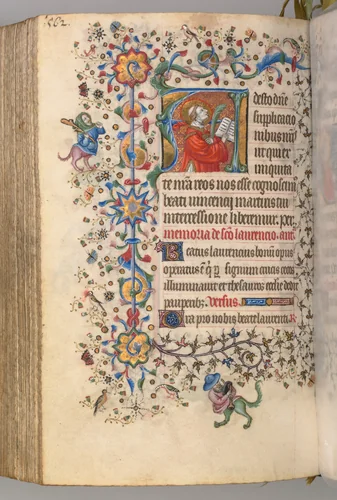 desto dñe
supplicatio
nibus nr̃is
ut qui ex
iniquita
te nr̃a reos nos esse cognoscim
beati vincencij martiris tui
intercessione liberemur. per
memoria de sc̃o laurencio. añt
Beatus laurencius bonum opus
operatus est qui per signum crucis cecos
illuminavit et thesauros ecclesie dedit
pauperib; versus.
Ora pro nobis beate laurenti. R